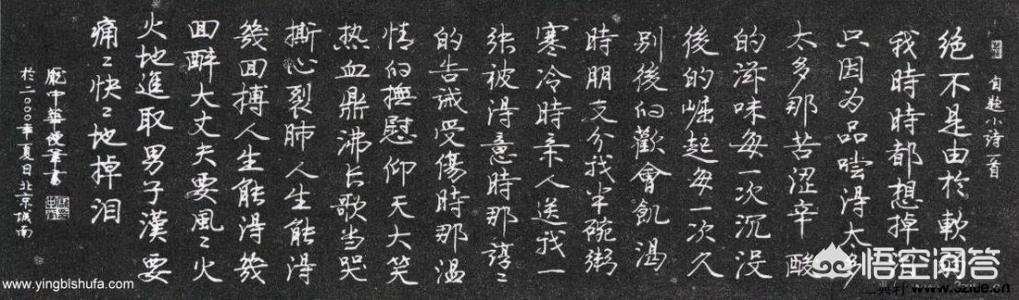 自题小诗一首
絕不是由於軟
我時時都想掉
只因为品嚐得太多
太多那苦涩辛酸
的滋味每一次沉没
後的崛起每一次久
别後的歡會飢渴
時朋友分我半碗粥
寒冷時亲人送我一
张被得意時那谆々
的告诫受傷時那温
情的撫慰仰天大笑
热血鼎沸长歌当哭
撕心裂肺人生能得
幾回搏人生能得幾
回醉大丈夫要風々火
火地進取男子漢要
痛々快々地掉泪
庞中華硬筆書
於二000年夏日北京城南
www.yingbishufa.com
悟空问答